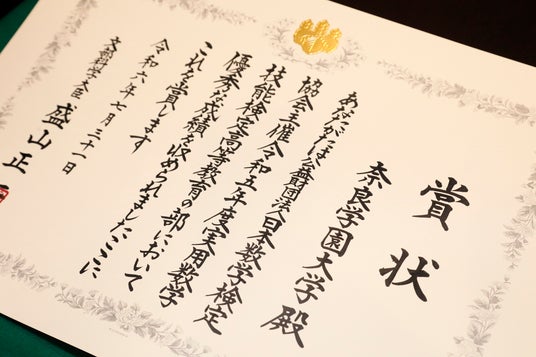 賞状
奈良学園大学 殿
あなたがたは公益財団法人日本数学検定
協会主催令和五年度実用数学
技能検定高等教育の部において
優秀な成績を収められましたここに
これを賞します
令和六年七月三十一日
文部科学大臣
盛山正